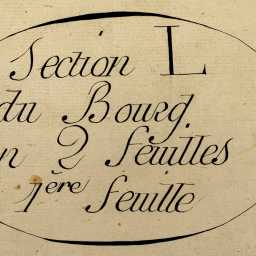 Section L
du Bourg
n 2 feuilles
1ère feuille